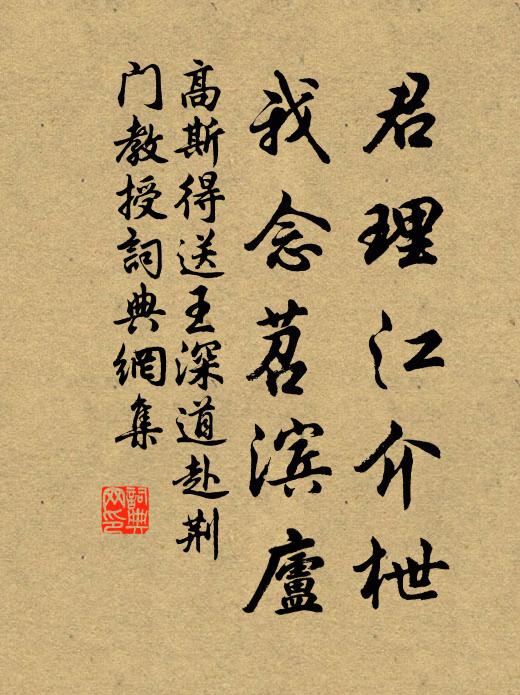 君理江介枻
我念苕滨廬
高斯得送王深道赴荆
门教授詞典網集
詞典网印